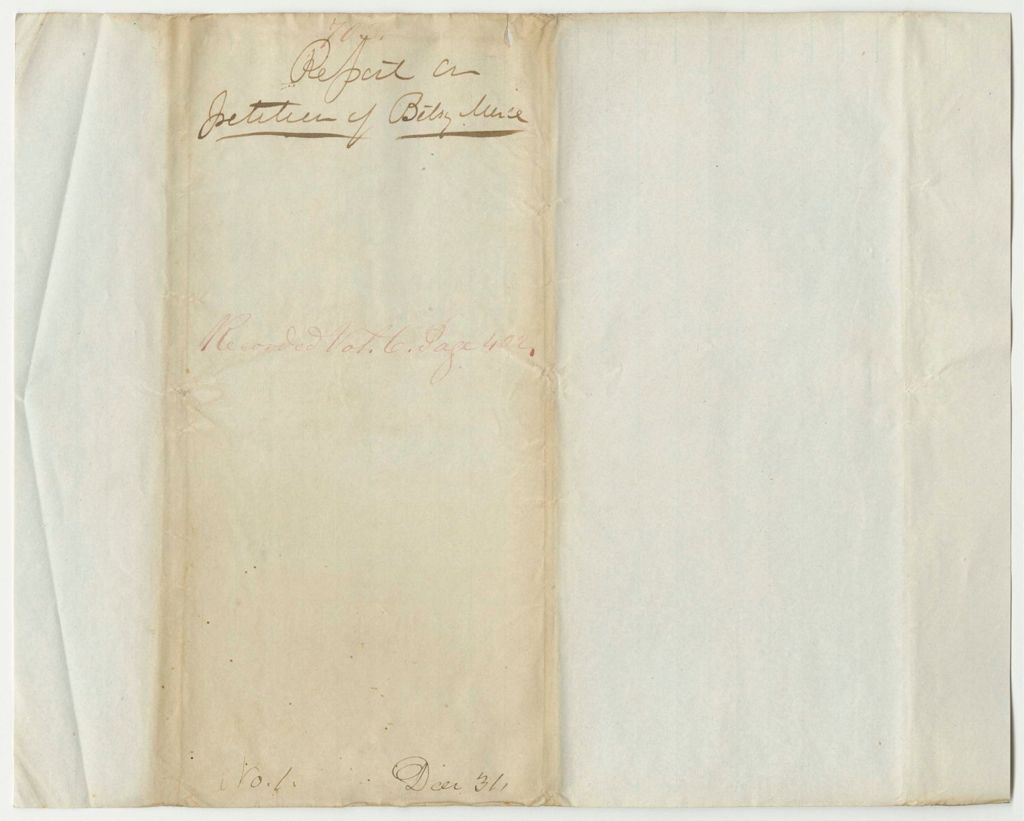 Report on
petition of Betsy
Recorded Vol. 6. Page 422.
No. 1. Dec 31,